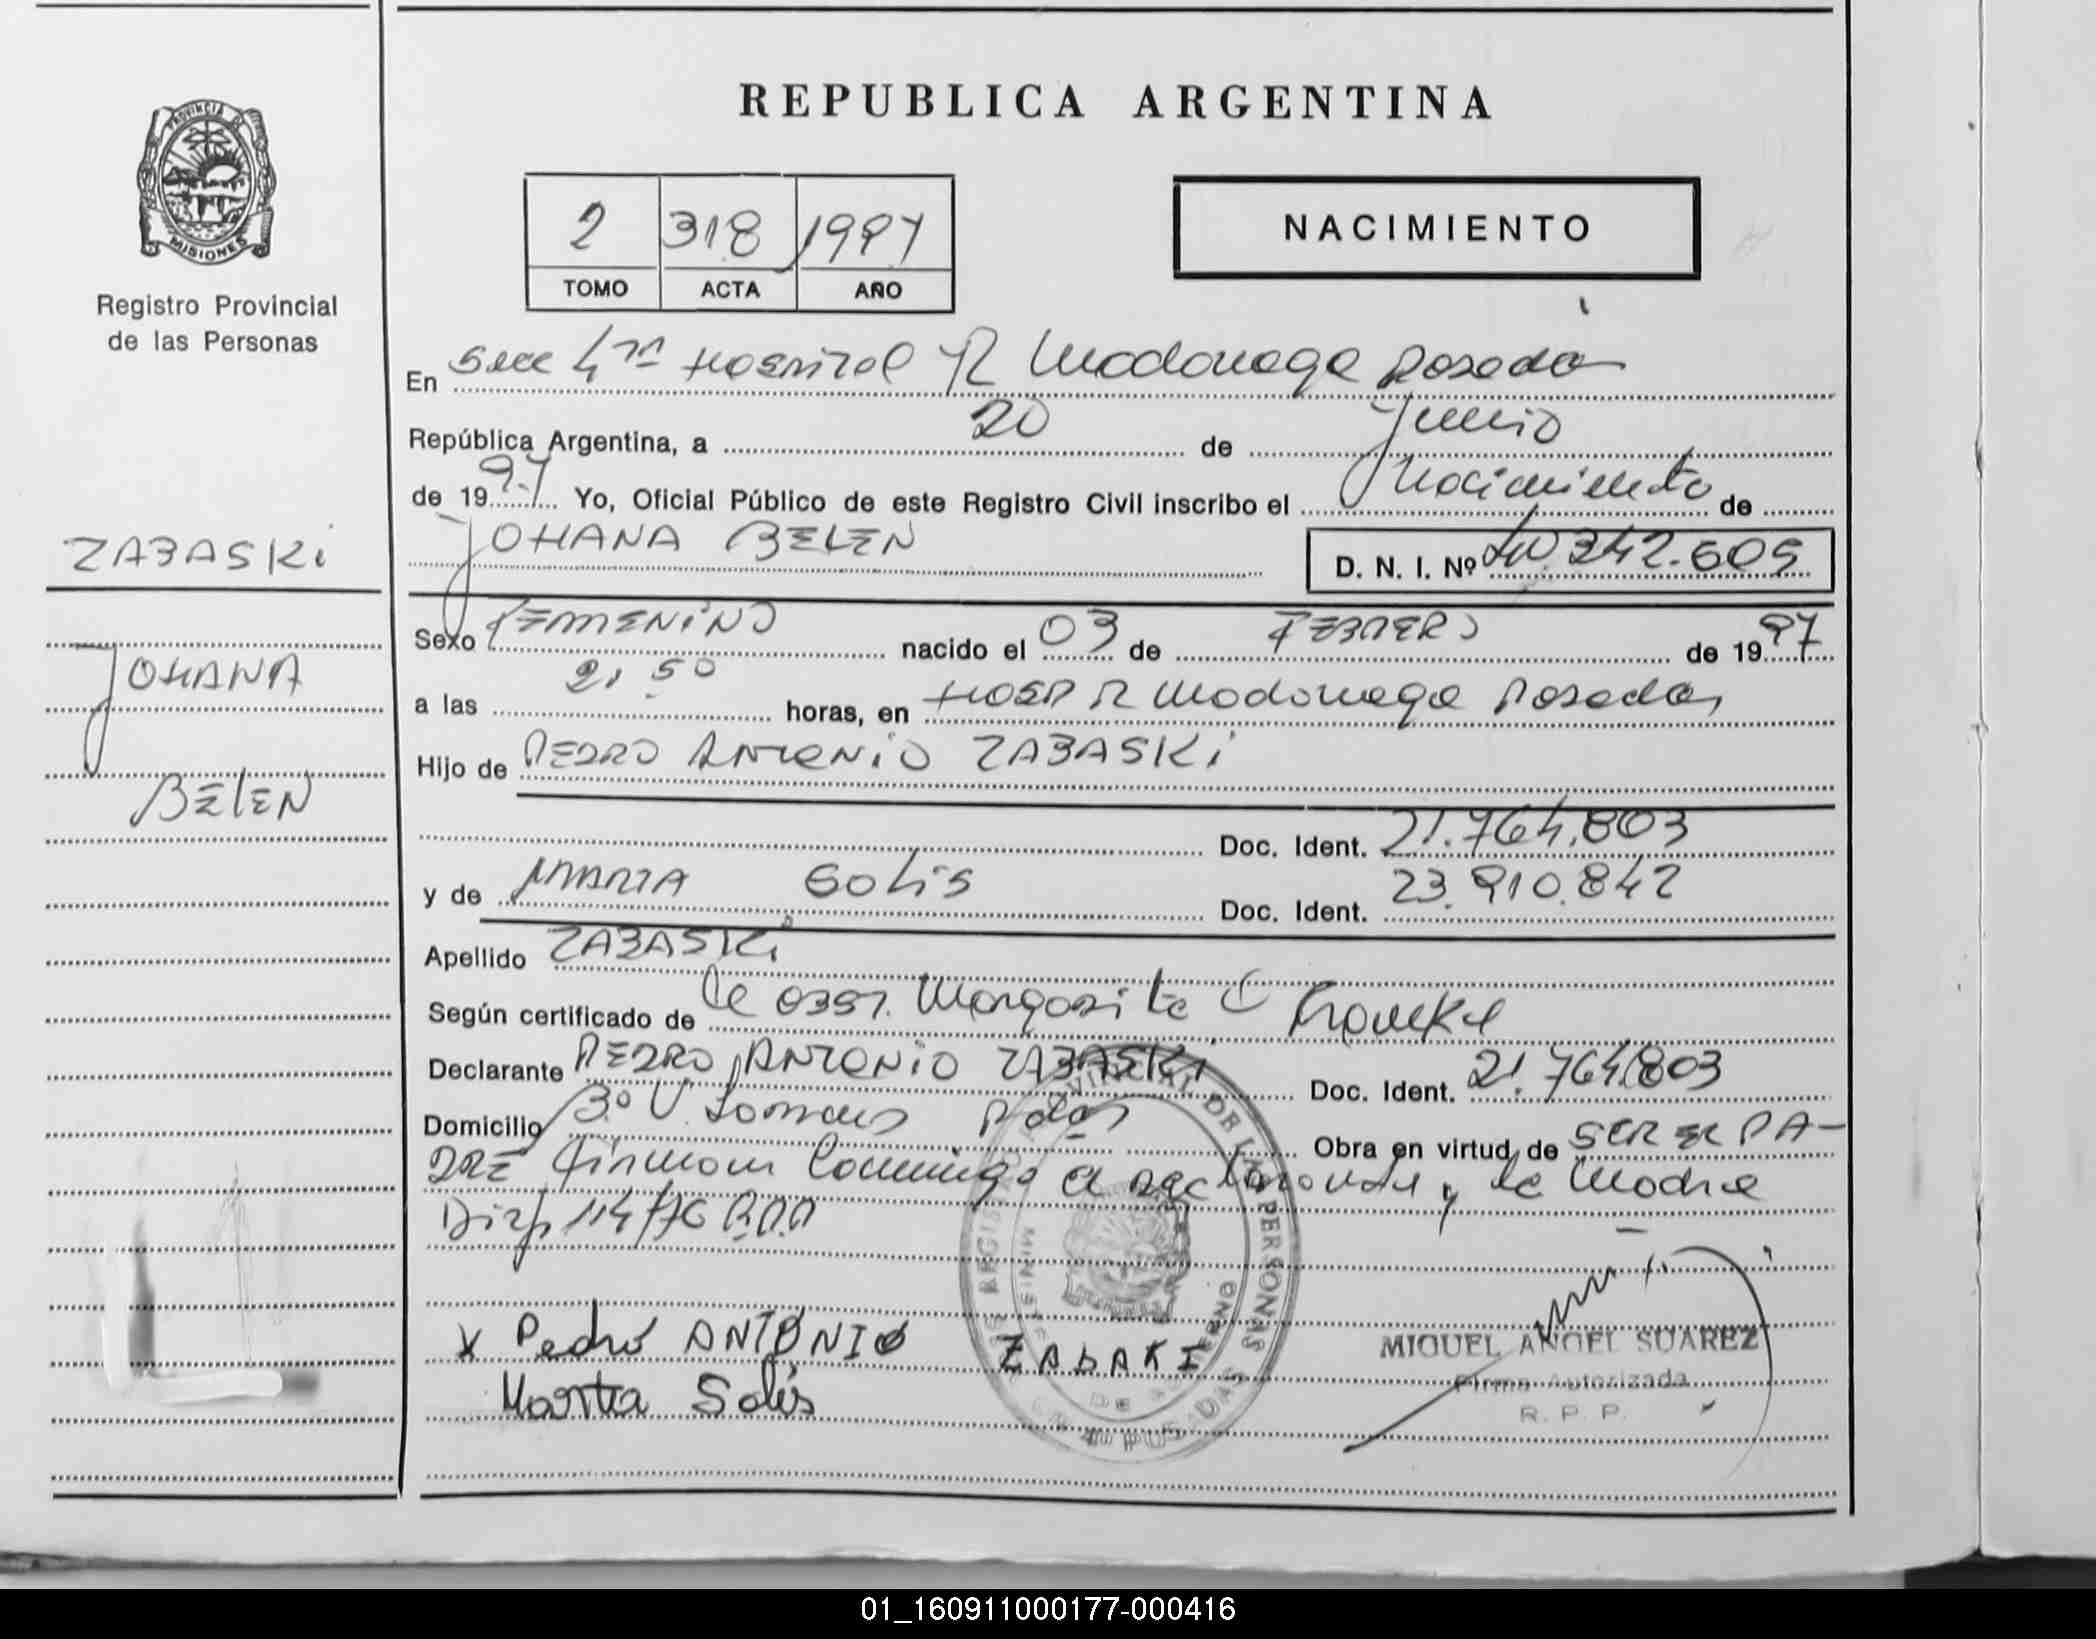 REPUBLICA ARGENTINA
PROVINCIA DE
MISIONES
Registro Provincial
de las Personas
2 318 1997
TOMO ACTA AÑO
NACIMIENTO
En Secc 4ta Hospital R Madariaga Posadas
República Argentina, a 20 de Junio
de 1997 Yo, Oficial Público de este Registro Civil inscribo el Nacimiento de
ZABASKI
JOHANA BELEN
D. N. I. Nº 40.342.605
Sexo FEMENINO nacido el 03 de FEBRERO de 1997
JOHANA
a las 21.50 horas, en HOSP R Madariaga Posadas
Hijo de PEDRO ANTONIO ZABASKI
BELEN
Doc. Ident. 21.764.803
y de MARTA SOLIS Doc. Ident. 23.910.842
Apellido ZABASKI
Según certificado de la OBST. Margarita C
Declarante PEDRO ANTONIO ZABASKI Doc. Ident. 21.764.803
Domicilio Pdas Obra en virtud de SER EL PA-
DRE firman conmigo el declarante y la Madre
Disp 114/76 R.P.P
x Pedro ANTONIO ZABAKI
Marta Solis
MIGUEL ANGEL SUAREZ
Firma Autorizada
R. P. P.
01_160911000177-000416